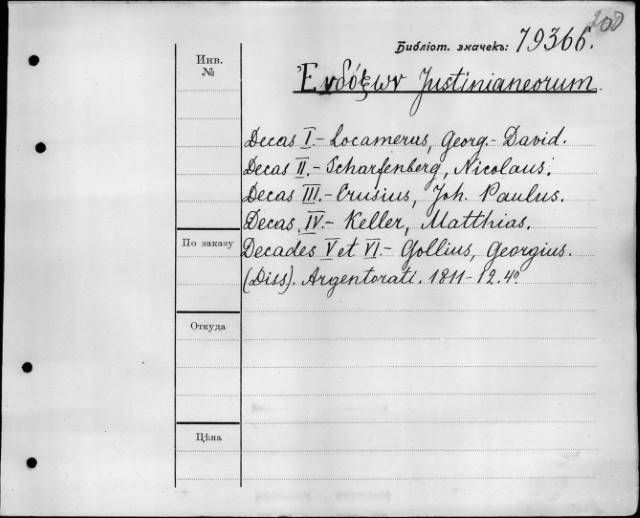 200
Библіот. значекъ: 79366.
Инв.
№
Ἐνδόξων Justinianeorum.
Decas I.- Locamerus, Georg.- David.
Decas II.- Scharfenberg, Nicolaus.
Decas III.- Crusius, Joh. Paulus.
Decas IV.- Keller, Matthias.
По заказу
Decades V et VI.- Gollius, Georgius.
(Diss). Argentorati. 1811-12. 4º
Откуда
Цѣна